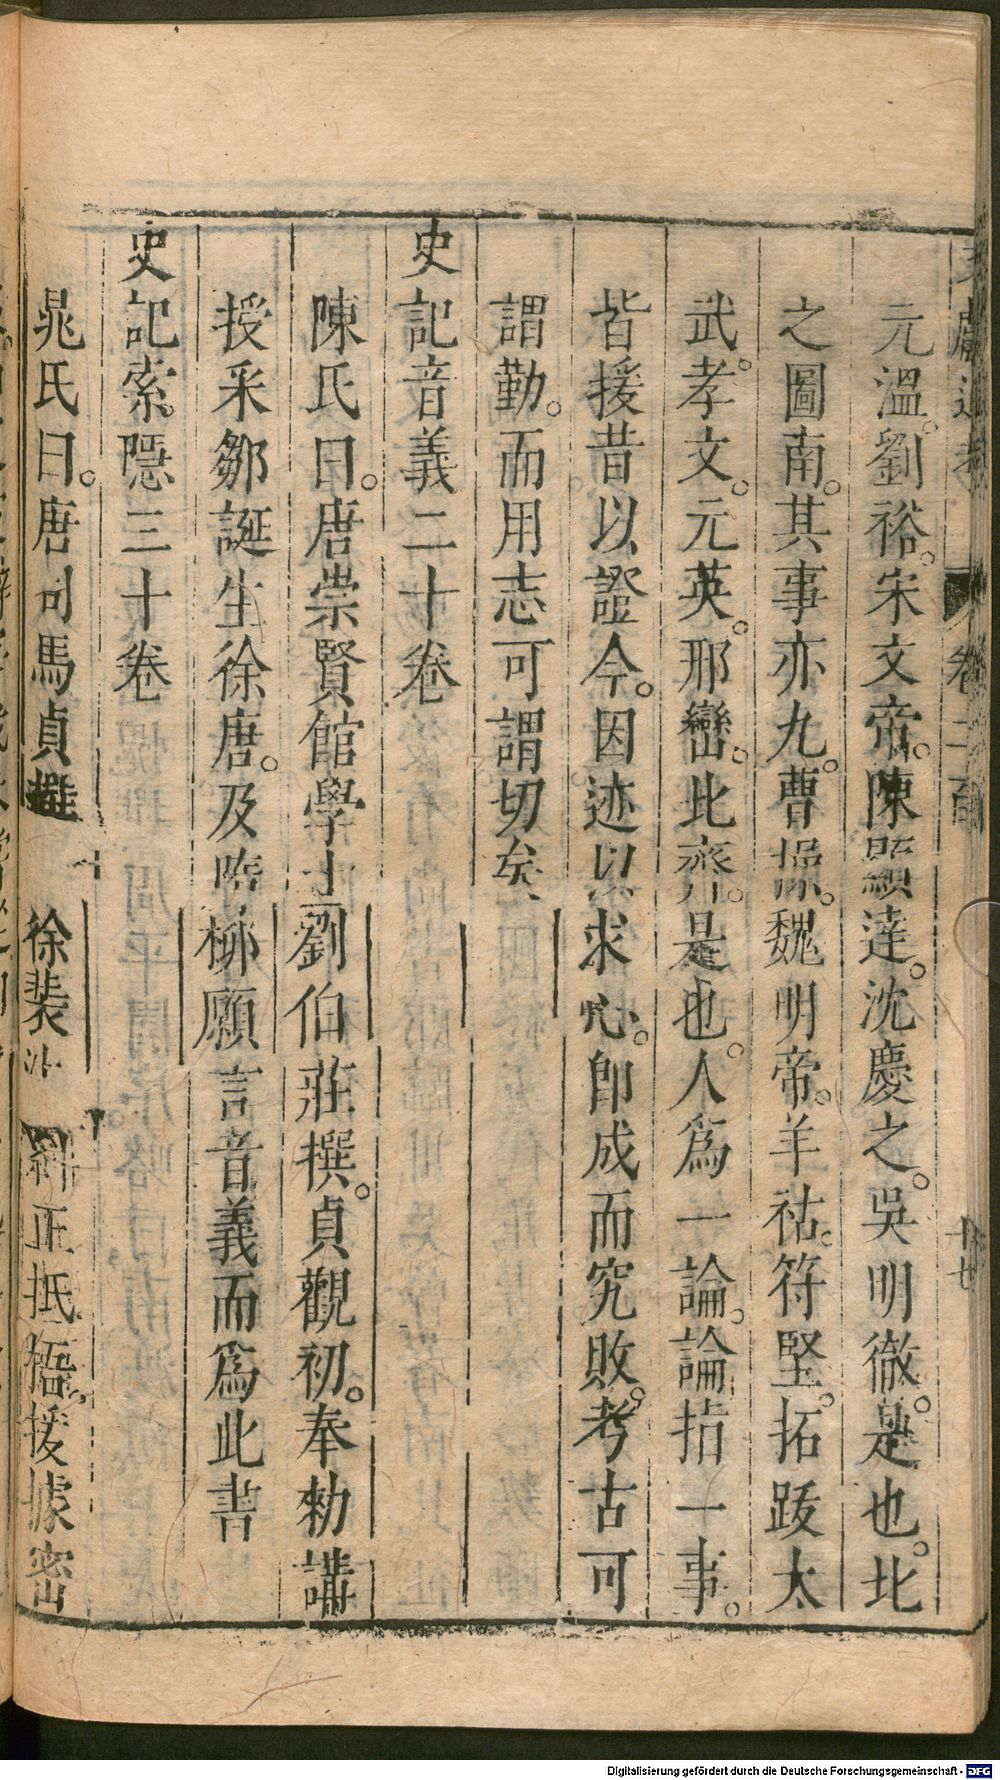 文獻通考 卷二百 十七
元溫。劉裕。宋文帝。陳顯達。沈慶之。吳明徹。是也。北
之圖南。其事亦九。曹操。魏明帝。羊祜。符堅。拓跋太
武。孝文。元英。邢巒。比齊。是也。人爲一論。論指一事。
皆援昔以證今。因迹以求心。卽成而究敗。考古可
謂勤。而用志可謂切矣
史記音義二十卷
陳氏曰。唐崇賢館學士劉伯莊撰。貞觀初。奉勑講
授采鄒誕生徐唐。及隋柳顧言音義而爲此書
史記索隱三十卷
晁氏曰。唐司馬貞撰 徐裴 糾正抵牾。援據密
Digitalisierung gefördert durch die Deutsche Forschungsgemeinschaft - DFG